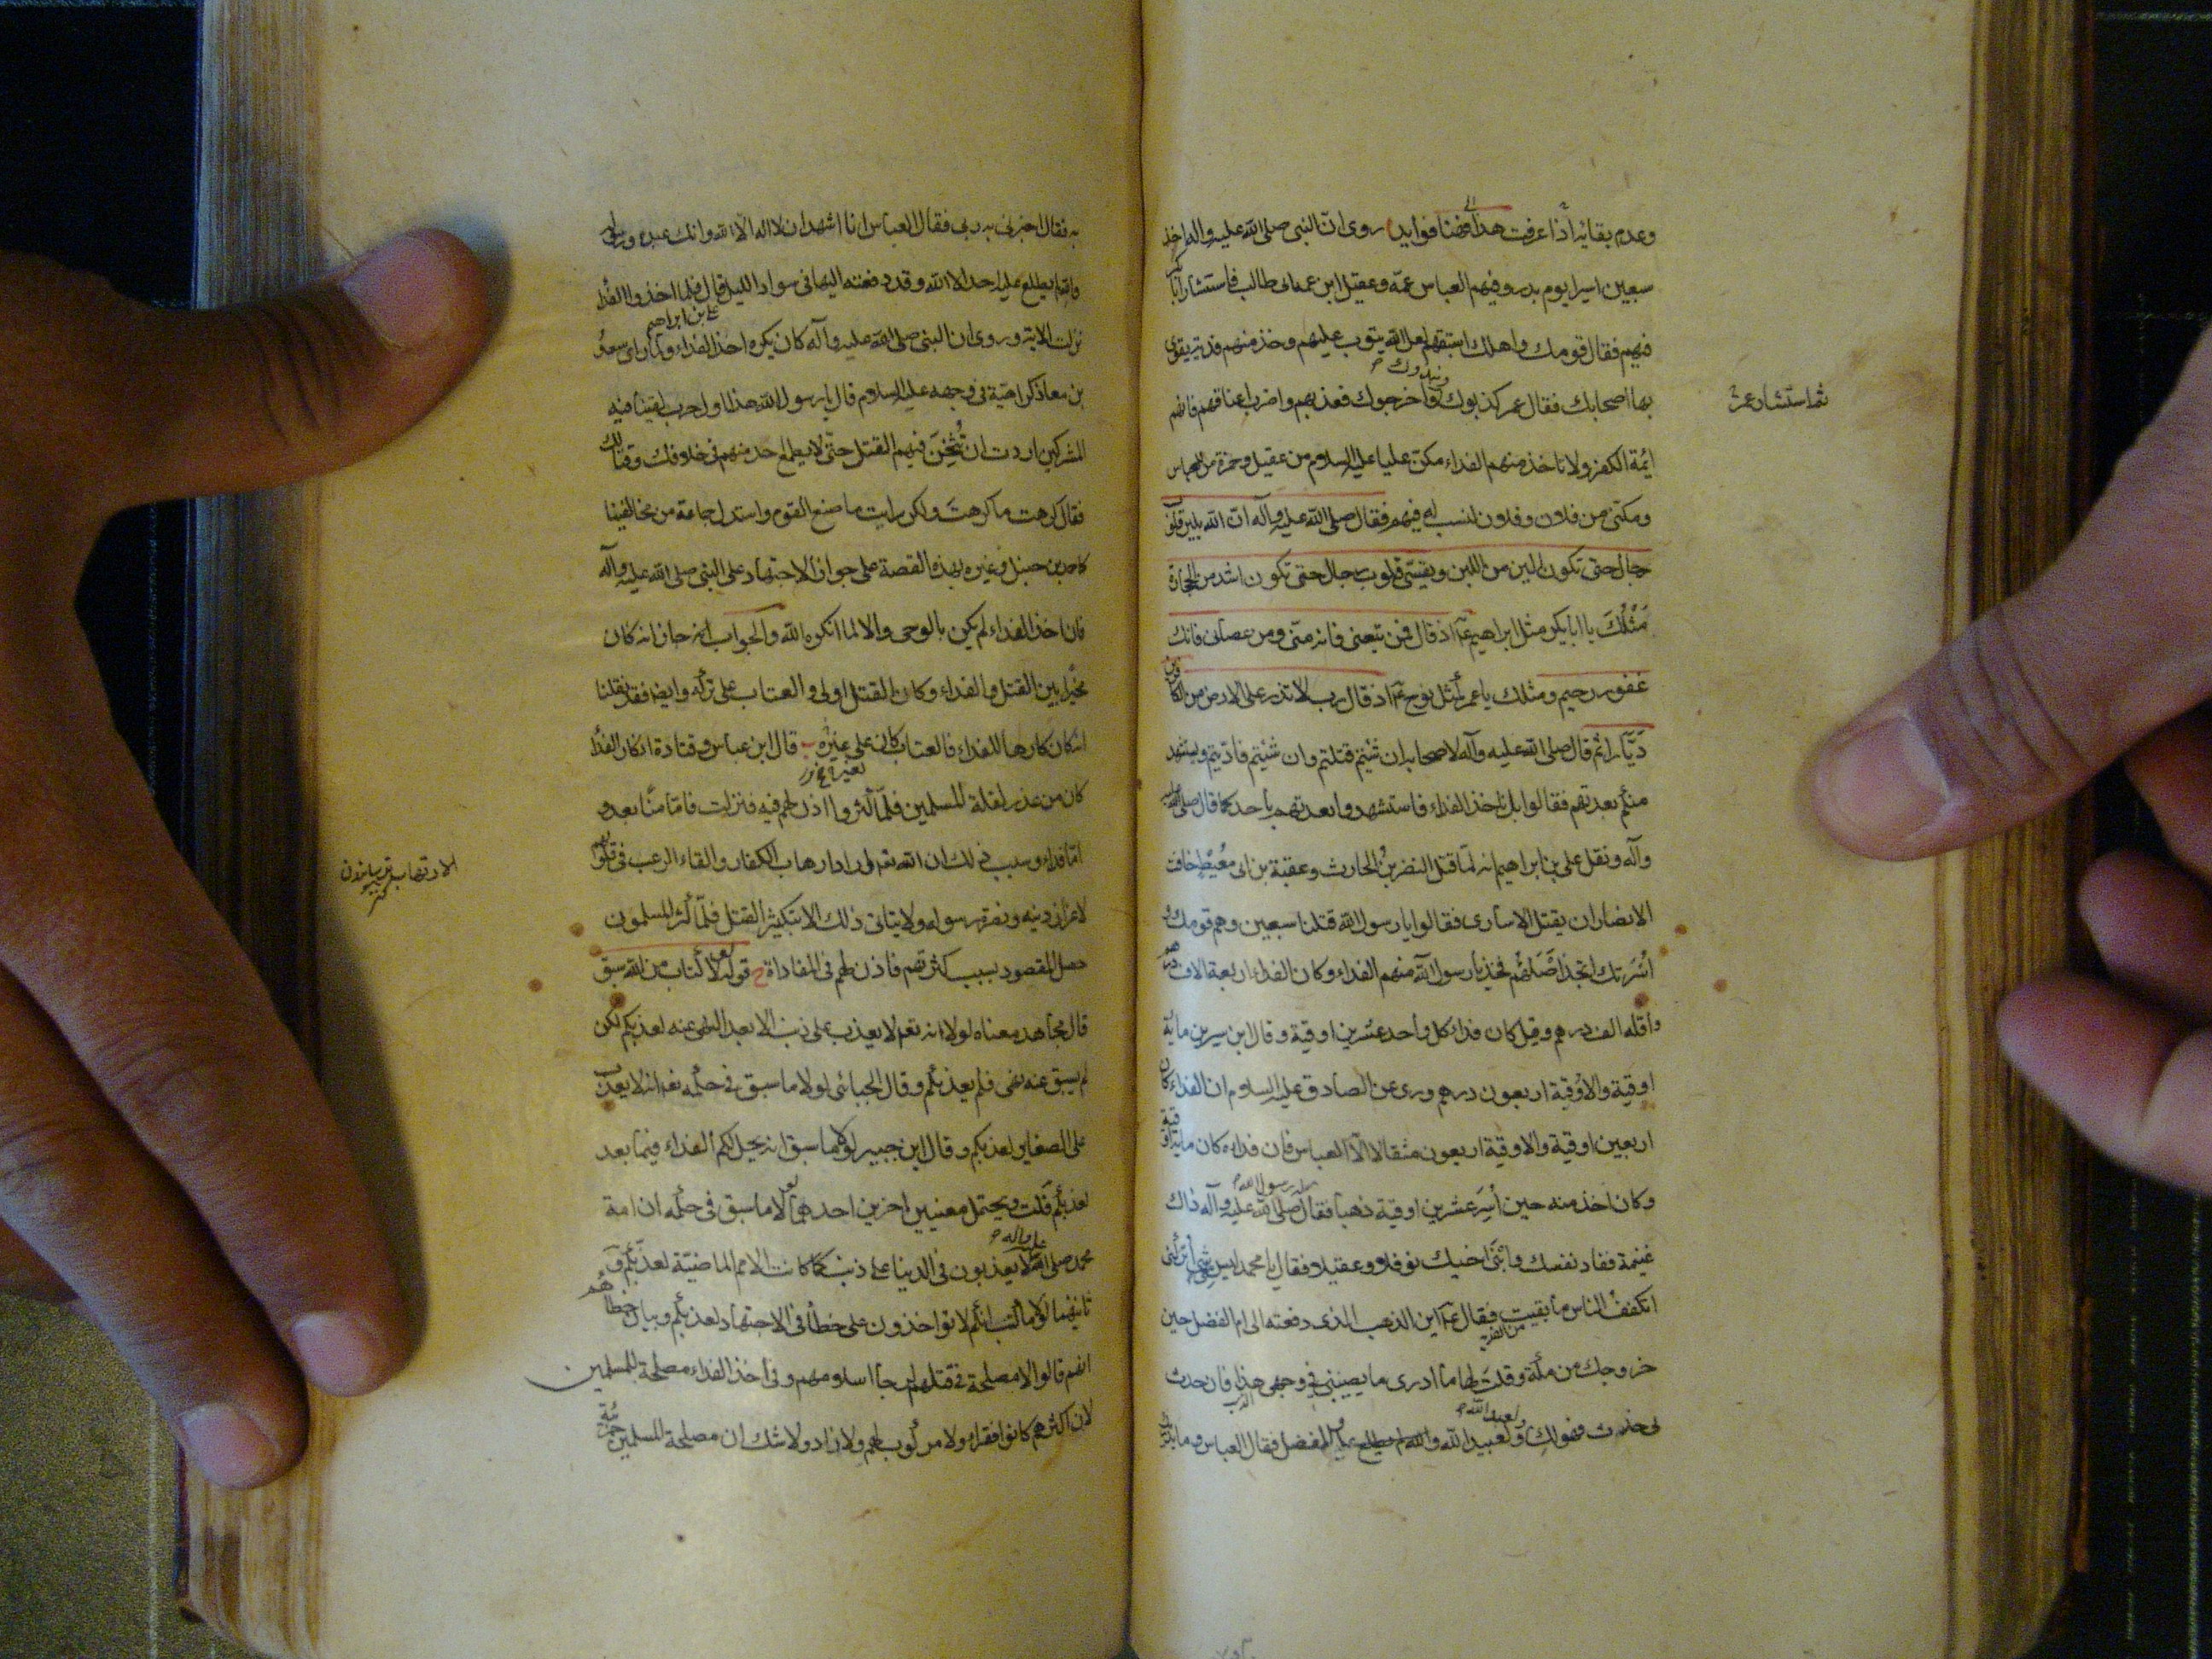 وعدم بقائه اذا عرفت هذا فهنا فوايد ا روى ان النبي صلى الله عليه واله اخذ
سبعين اسيرا يوم بدر وفيهم العباس عمه وعقيل ابن عمه ابى طالب فاستشار ابا بكر
فيهم فقال قومك واهلك استبقهم لعل الله يتوب عليهم وخذ منهم فدية يقوى
بها اصحابك فقال عمر كذبوك ونبذوك واخرجوك فقدمهم واضرب اعناقهم فانهم
ثم استشار عمر
ائمة الكفر ولا تاخذ منهم الفداء مكن عليا عليه السلام من عقيل وحمزة من العباس
ومكنى من فلان وفلان لنسب له فيهم فقال صلى الله عليه وآله ان الله يلين قلوب
رجال حتى تكون الين من اللبن ويقسى قلوب رجال حتى تكون اشد من الحجارة
مَثَلُكَ يا ابا بكر مثل ابراهيم اذ قال فمن تبعنى فانه منى ومن عصانى فانك
غفور رحيم ومثلك يا عمر كمثل نوح اذ قال رب لا تذر على الارض من الكافرين
دَيَّارا ثم قال صلى الله عليه وآله لاصحابه ان شئتم قتلتم وان شئتم فاديتم ويستشهد
منكم بعدتهم فقالوا بل ناخذ الفداء فاستشهدوا بعدتهم باحد كما قال صلى الله عليه
وآله ونقل على بن ابراهيم انه لما قتل النضر بن الحارث وعقبة بن ابى مُعيط خافت
الانصار ان يقتل الاسارى فقالوا يا رسول الله قتلنا سبعين وهم قومك و
اُسْرَتك اتجذ اصلهم فخذ يا رسول الله منهم الفداء وكان الفداء اربعة الاف درهم
واقله الف درهم وقيل كان فداء كل واحد عشرين اوقية وقال ابن سيرين ماية
اوقية والاوقية اربعون درهم وروى عن الصادق عليه السلام ان الفداء كان
اربعين اوقية والاوقية اربعون مثقالا الا العباس فان فداءه كان ماية اوقية
وكان اخذ منه حين اُسِرَ عشرين اوقية ذهبا فقال رسول الله صلى الله عليه وآله ذاك
غنيمة ففاد نفسك وابنَى اخيك نوفلا وعقيلا فقال يا محمد ليس معى شئ أتتركنى
اتكفف الناس ما بقيت فقال اين الذهب الذى دفعته الى ام الفضل حين
خروجك من مكة وقلت لها ما ادرى ما يصيبنى فى وجهى هذا فان حدث
لى حدث فهو لك ولعبد الله ولعبيد الله والفضل فقال العباس وما يدريك
به فقال اخبرنى به ربى فقال العباس انا اشهد ان لا اله الا الله وانك عبده ورسوله
والله لم يطلع عليه احد الا الله وقد دفعته اليها فى سواد الليل قال فلما اخذوا الفداء
نزلت الاية وروى على بن ابراهيم ان النبى صلى الله عليه وآله كان يكره اخذ الفداء ولما راى سعد
بن معاذ كراهية فى وجهه عليه السلام قال يا رسول الله هذا اول حرب لقينا فيه
المشركين اردت ان تُثْخِنَ فيهم القتل حتى لا يطمع احد منهم فى خلافك وقتالك
فقال كرهت ما كرهتَ ولكن رايت ما صنع القوم واستدل جماعة من مخالفينا
كاحمد بن حنبل وغيره بهذه القصة على جواز الاجتهاد على النبى صلى الله عليه وآله
فان اخذ الفداء لم يكن بالوحى والا لما انكره الله والجواب انه جاز انه كان
مخيرا بين القتل والفداء وكان القتل اولى والعتاب على تركه وايضا فقد نقلنا
انه كان كارها للفداء فالعتاب كان على غيره ب قال ابن عباس وقتادة انكار الفداء
كان من عذر لقلة المسلمين فلما كثروا اذن لهم فيه فنزلت فاما منّا بعد و
اما فداء وسبب ذلك ان الله تعالى اراد ارهاب الكفار والقاء الرعب فى قلوبهم
لاعزاز دينه ونصرة رسوله ولا يتاتى ذلك الا بتكثير القتل فلما كثر المسلمون
حصل المقصود بسبب كثرتهم فاذن لهم فى المفاداة ج قوله لولا كتاب من الله سبق
قال مجاهد معناه لولا انه تعالى لا يعذب على ذنب الا بعد النهى عنه لعذبكم لكن
لم يسبق عنه نهى فلم يعذبكم وقال الجبائى لولا ما سبق فى حكمه تعالى انه لا يعذب
على الصغاير لعذبكم وقال ابن جبير لولا ما سبق انه يحل لكم الفداء فيما بعد
لعذبكم قلت ويحتمل معنيين اخرين احدهما لولا ما سبق فى حكمه ان امة
محمد صلى الله عليه وآله لا يعذبون فى الدنيا على ذنب كما كانت الامم الماضية لعذبكم و
ثانيهما لولا ما كتب انكم لا تؤاخذون على خطأ فى الاجتهاد لعذبكم وبيان خطاهم
انهم قالوا لا مصلحة فى قتلهم لرجاء اسلامهم وفى اخذ الفداء مصلحة للمسلمين
لان اكثرهم كانوا فقراء ولا مركوب لهم ولا زاد ولا شك ان مصلحة المسلمين